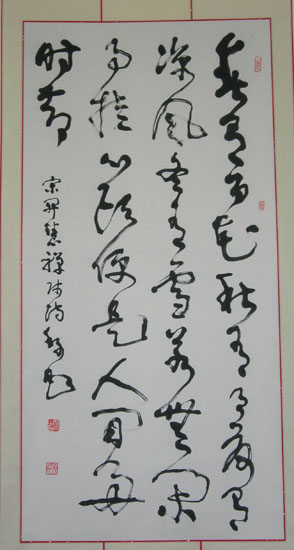 春有百花秋有月夏有
凉风冬有雪若無闲
事挂心頭便是人间好
时节
宋开慧禅师诗